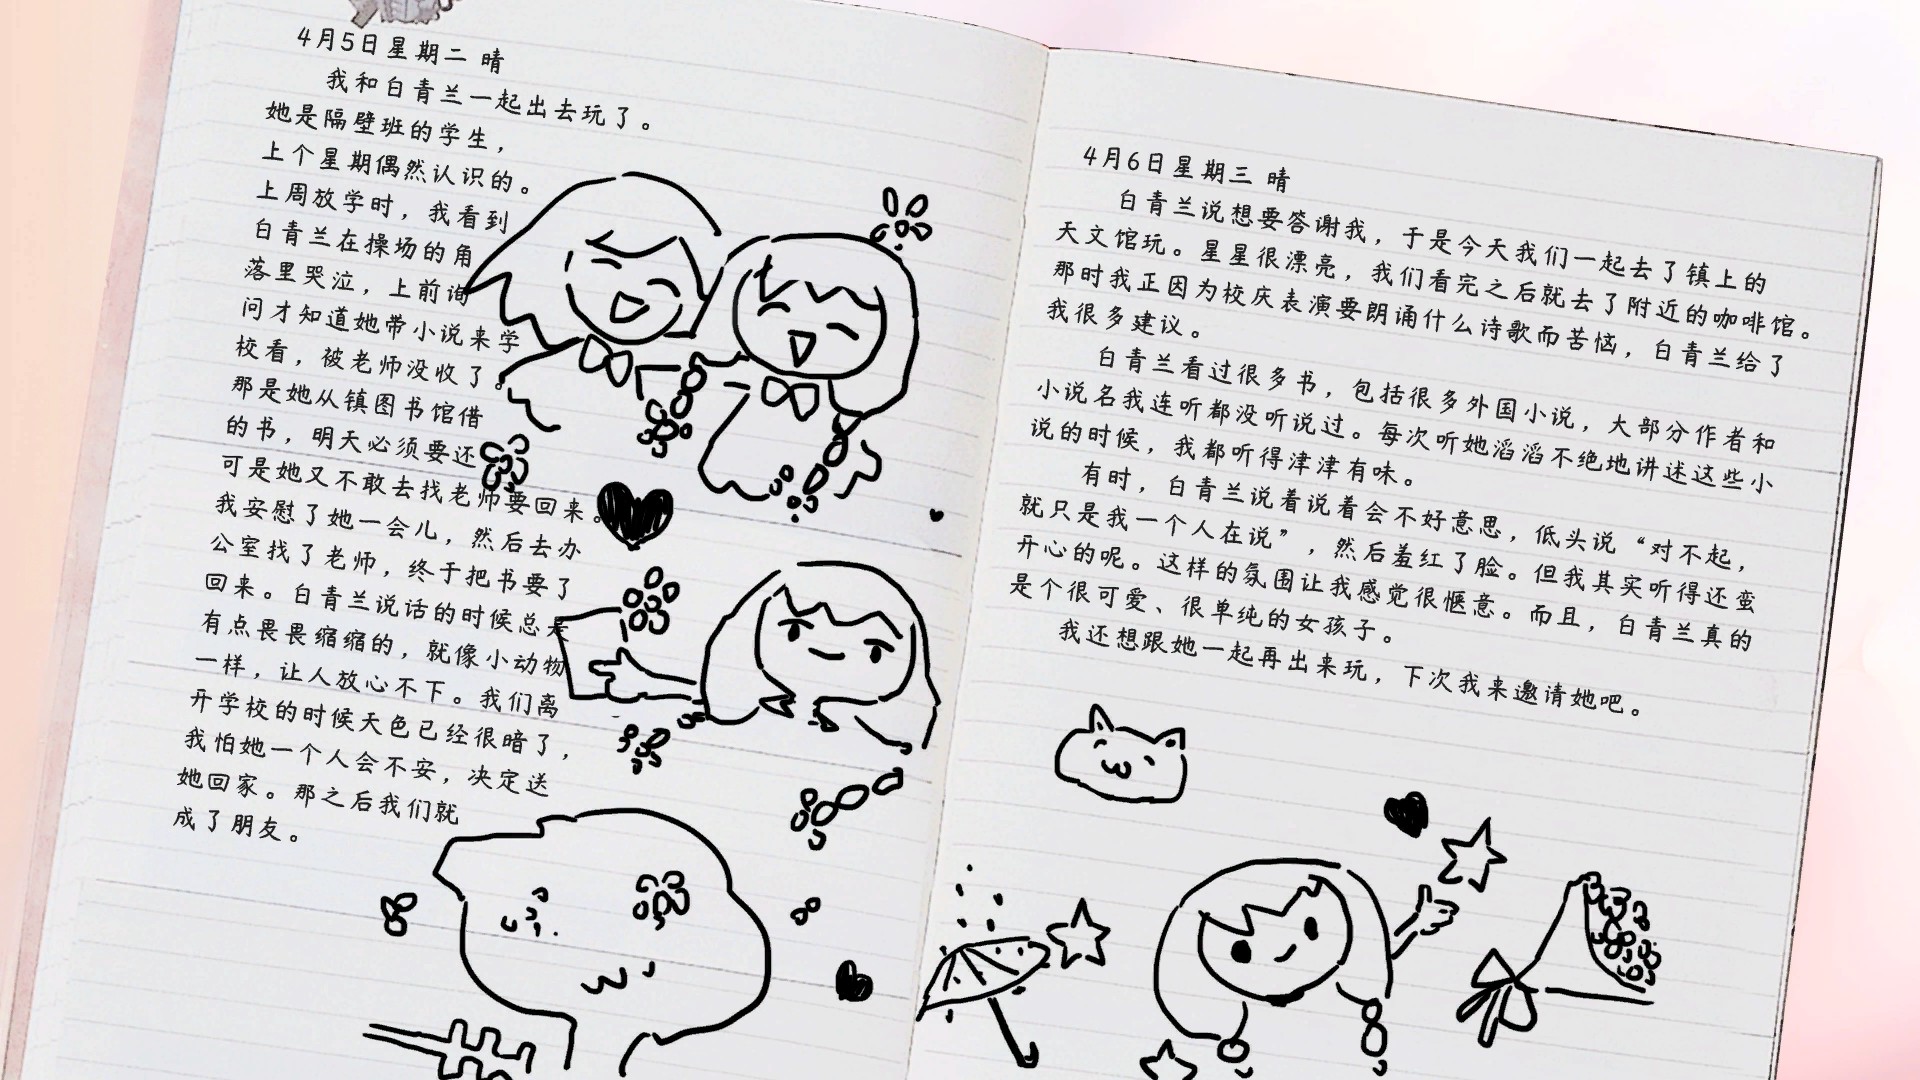 4月5日星期二 晴
我和白青兰一起出去玩了。
她是隔壁班的学生，
上个星期偶然认识的。
上周放学时，我看到
白青兰在操场的角
落里哭泣，上前询
问才知道她带小说来学
校看，被老师没收了。
那是她从镇图书馆借
的书，明天必须要还，
可是她又不敢去找老师要回来。
我安慰了她一会儿，然后去办
公室找了老师，终于把书要了
回来。白青兰说话的时候总是
有点畏畏缩缩的，就像小动物
一样，让人放心不下。我们离
开学校的时候天色已经很暗了，
我怕她一个人会不安，决定送
她回家。那之后我们就
成了朋友。
4月6日星期三 晴
白青兰说想要答谢我，于是今天我们一起去了镇上的
天文馆玩。星星很漂亮，我们看完之后就去了附近的咖啡馆。
那时我正因为校庆表演要朗诵什么诗歌而苦恼，白青兰给了
我很多建议。
白青兰看过很多书，包括很多外国小说，大部分作者和
小说名我连听都没听说过。每次听她滔滔不绝地讲述这些小
说的时候，我都听得津津有味。
有时，白青兰说着说着会不好意思，低头说“对不起，
就只是我一个人在说”，然后羞红了脸。但我其实听得还蛮
开心的呢。这样的氛围让我感觉很惬意。而且，白青兰真的
是个很可爱、很单纯的女孩子。
我还想跟她一起再出来玩，下次我来邀请她吧。